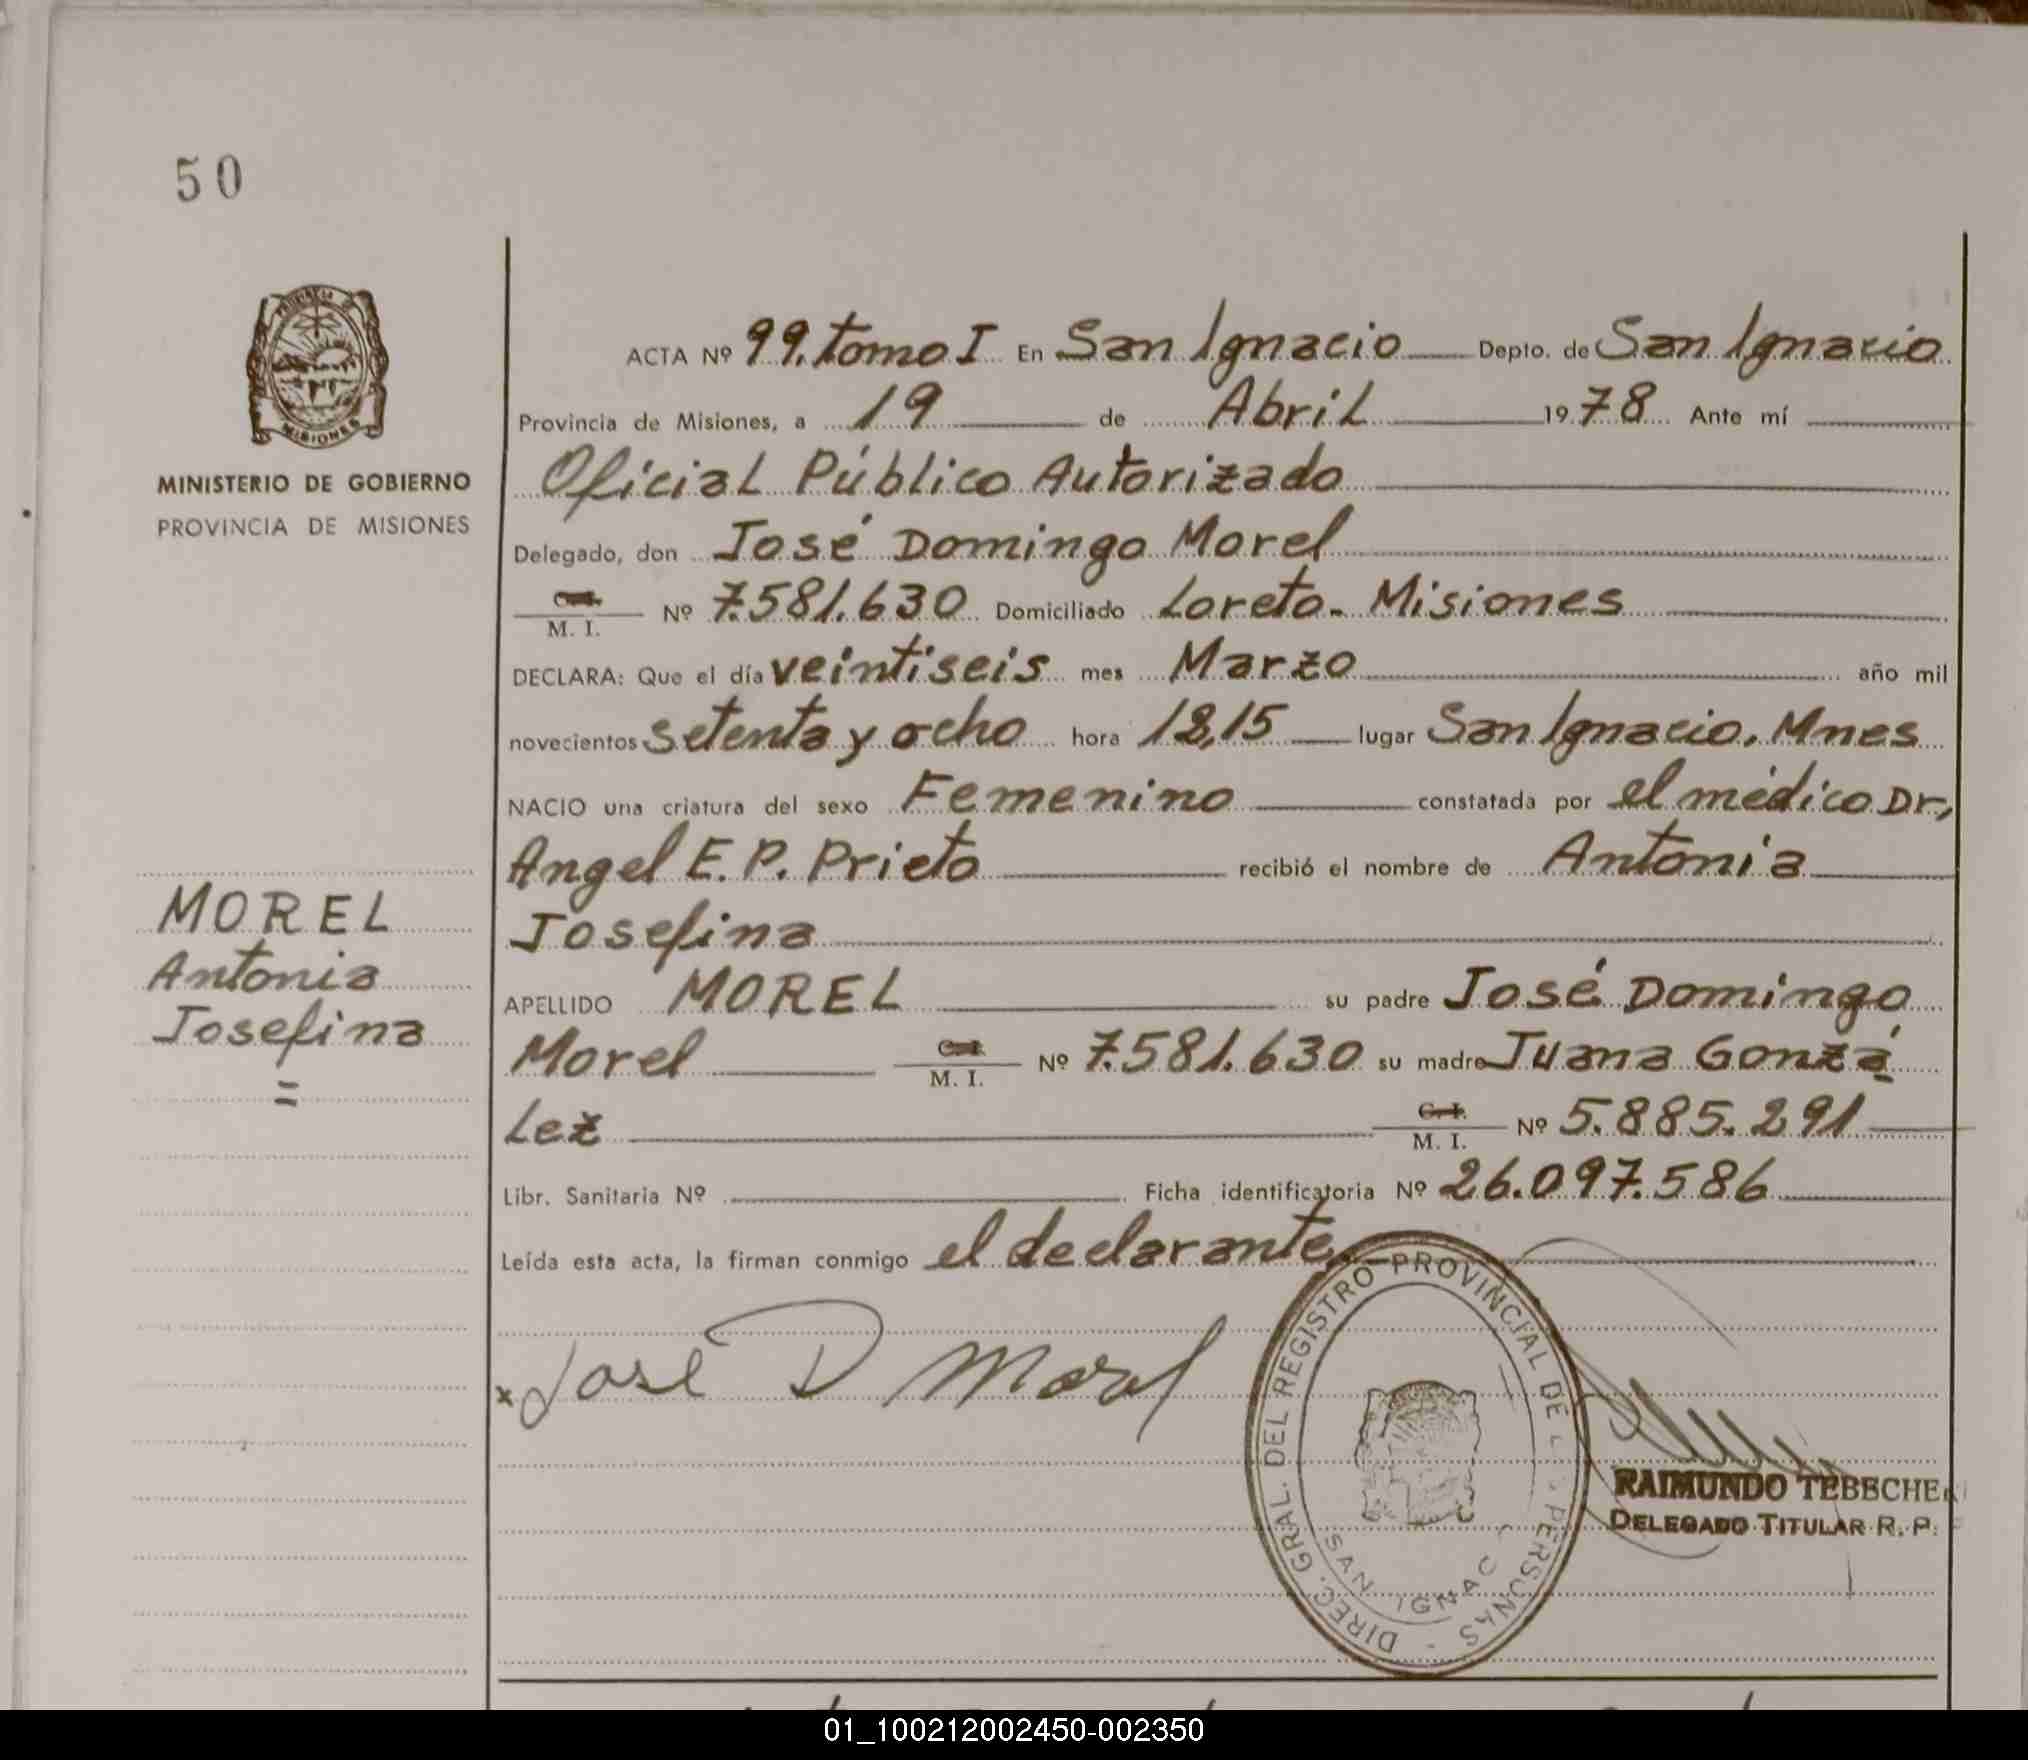 50
PROVINCIA
MISIONES
MINISTERIO DE GOBIERNO
PROVINCIA DE MISIONES
MOREL
Antonia
Josefina
=
ACTA Nº 99. tomo I En San Ignacio Depto. de San Ignacio
Provincia de Misiones, a 19 de Abril 19 78 Ante mí
Oficial Público Autorizado
Delegado, don José Domingo Morel
C.I. M. I. Nº 7.581.630 Domiciliado Loreto - Misiones
DECLARA: Que el día veintiseis mes Marzo año mil
novecientos setenta y ocho hora 18,15 lugar San Ignacio, Mnes
NACIO una criatura del sexo Femenino constatada por el médico Dr,
Angel E. P. Prieto recibió el nombre de Antonia
Josefina
APELLIDO MOREL su padre José Domingo
Morel C.I. M. I. Nº 7.581.630 su madre Juana Gonzá
lez C.I. M. I. Nº 5.885.291
Libr. Sanitaria Nº Ficha identificatoria Nº 26.097.586
Leída esta acta, la firman conmigo el declarante,
x José D Morel
DIREC. GRAL. DEL REGISTRO PROVINCIAL DE PERSONAS -
SAN IGNAC
RAIMUNDO TEBECHE
DELEGADO TITULAR R. P.
01_100212002450-002350